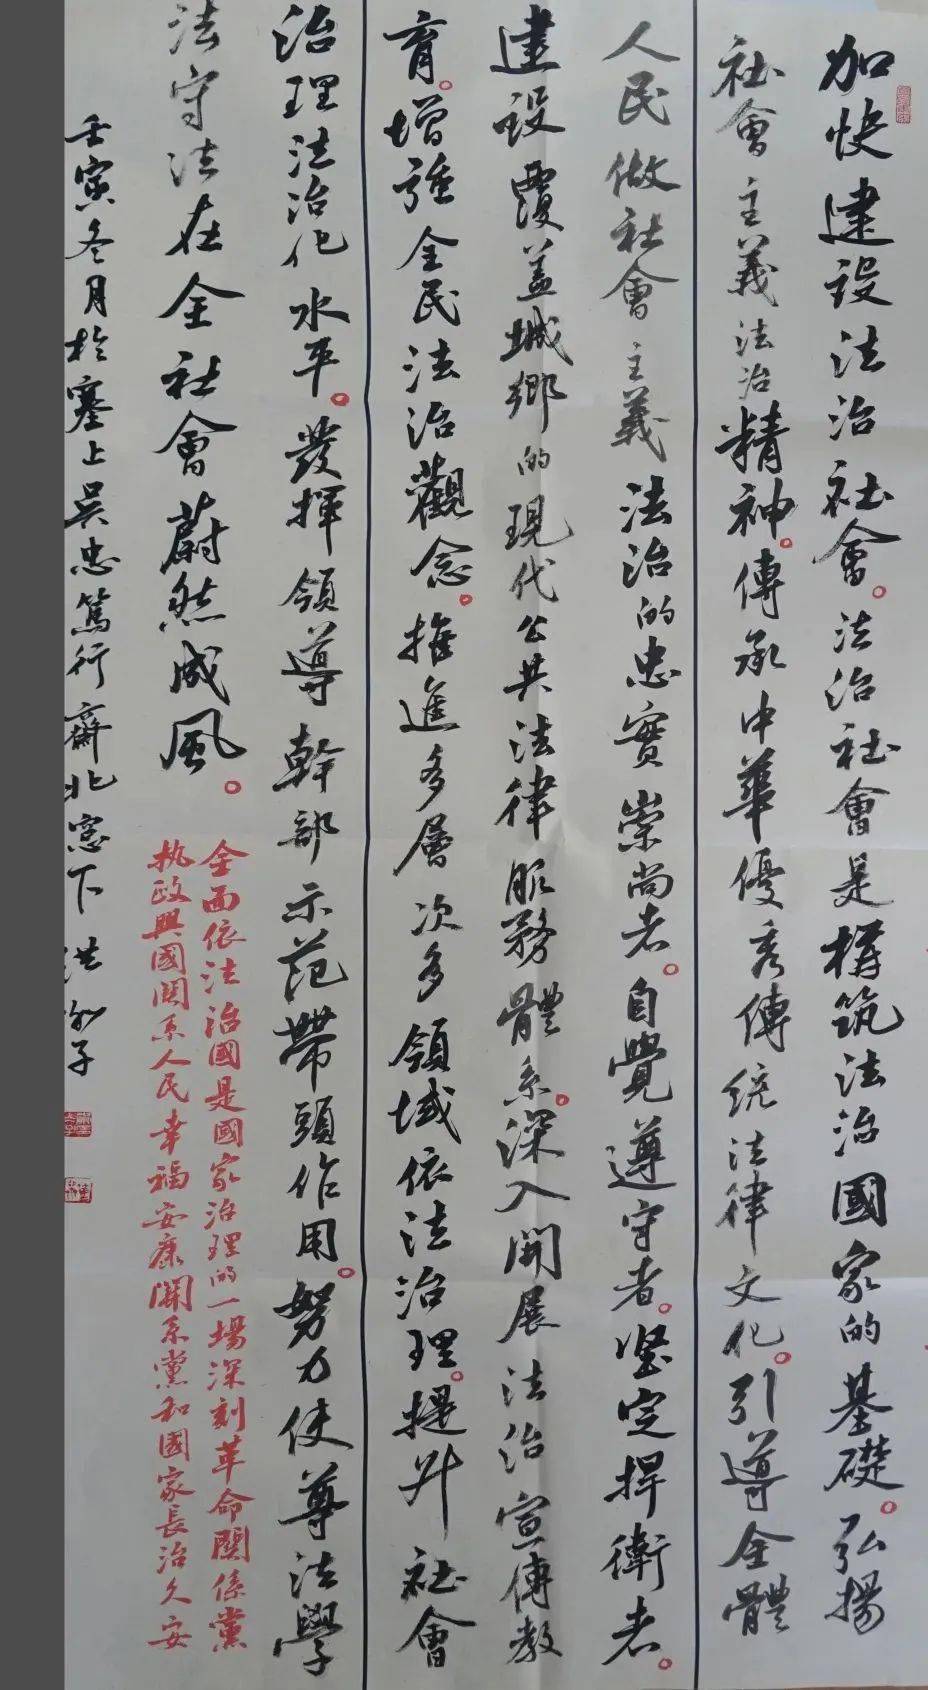 加快建设法治社會。法治社會是構筑法治國家的基礎。弘揚
社會主義法治精神。傳承中華優秀傳统法律文化。引導全體
人民做社會主義法治的忠實崇尚者。自覺遵守者。坚定捍衛者。
建設覆盖城鄉的現代公共法律服務體系。深入開展法治宣傳教
育。增强全民法治觀念。推進多層次多領域依法治理。提升社會
治理法治化水平。發揮領導幹部示范帶頭作用。努力使尊法學
法守法在全社會蔚然成風。
全面依法治國是國家治理的一場深刻革命關係黨
执政興國関系人民幸福安康關系黨和國家長治久安
壬寅冬月於塞上吴忠篤行齋北窓下洪